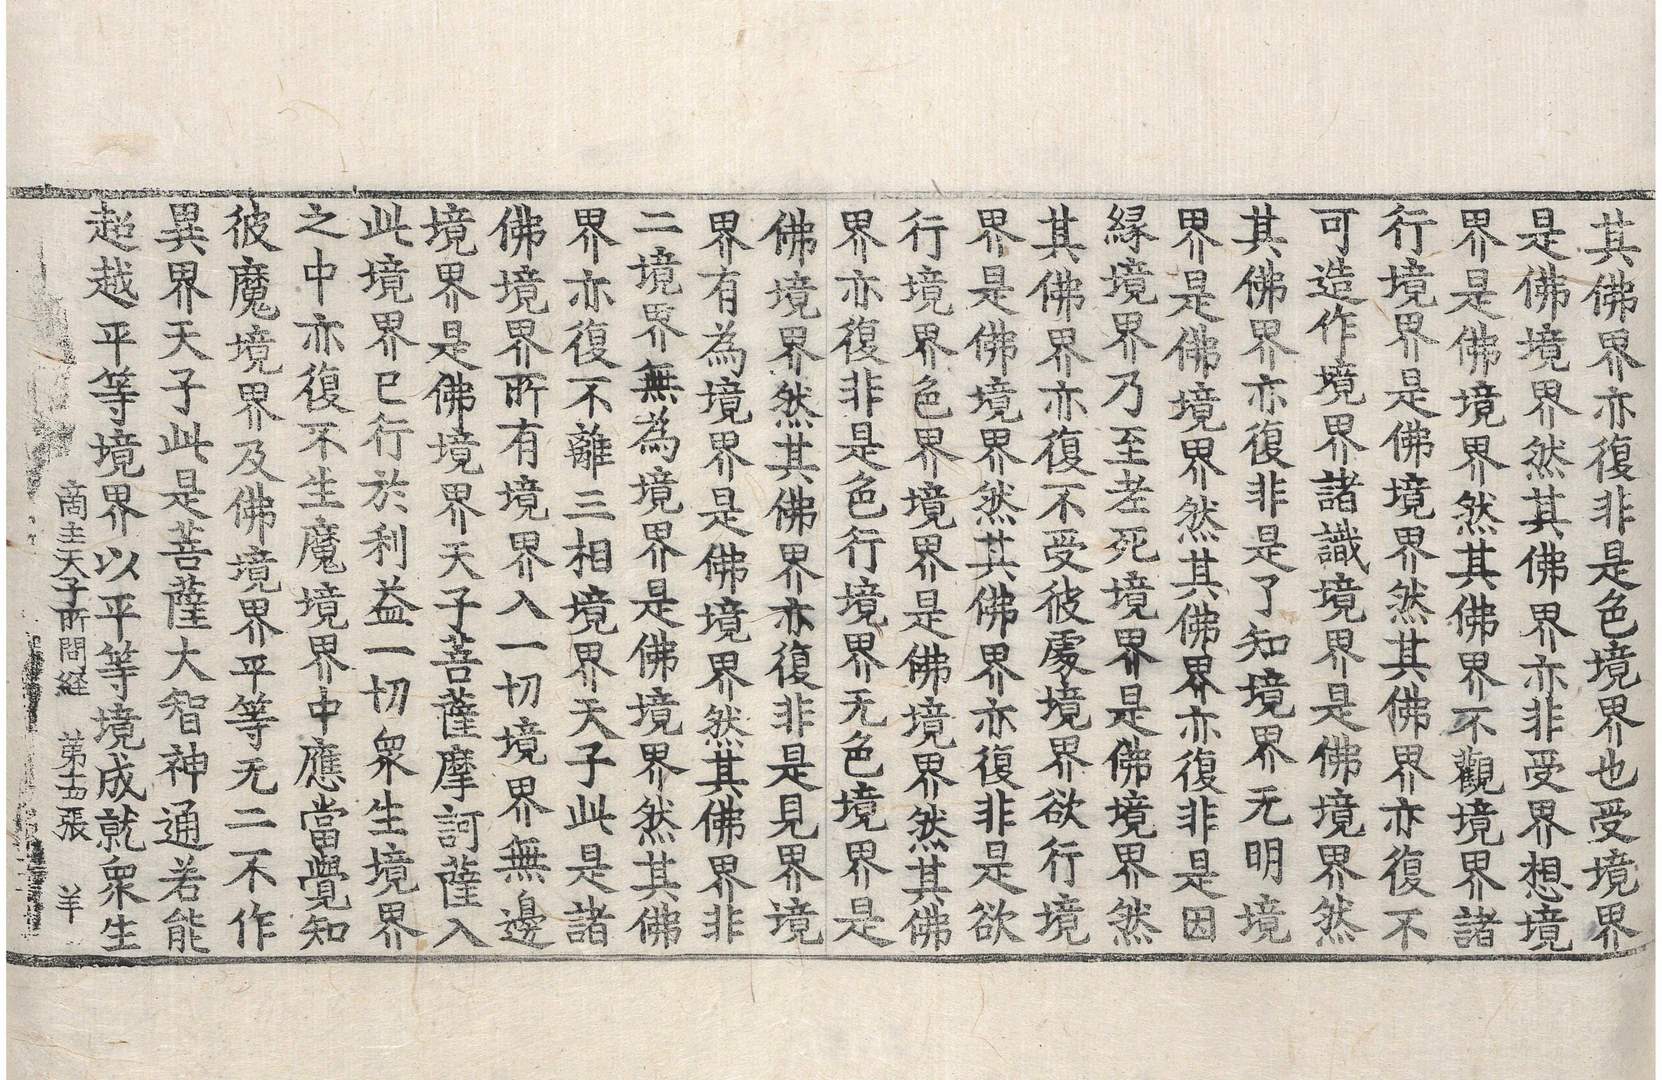 其佛界亦復非是色境界也受境界
是佛境界然其佛界亦非受界想境
界是佛境界然其佛界不觀境界諸
行境界是佛境界然其佛界亦復不
可造作境界諸識境界是佛境界然
其佛界亦復非是了知境界无明境
界是佛境界然其佛界亦復非是因
縁境界乃至老死境界是佛境界然
其佛界亦復不受彼處境界欲行境
界是佛境界然其佛界亦復非是欲
行境界色界境界是佛境界然其佛
界亦復非是色行境界无色境界是
佛境界然其佛界亦復非是見界境
界有為境界是佛境界然其佛界非
二境界無為境界是佛境界然其佛
界亦復不離三相境界天子此是諸
佛境界所有境界入一切境界無邊
境界是佛境界天子菩薩摩訶薩入
此境界已行於利益一切衆生境界
之中亦復不生魔境界中應當覺知
彼魔境界及佛境界平等无二不作
異界天子此是菩薩大智神通若能
超越平等境界以平等境成就衆生
商主天子所問経　第十五張　羊